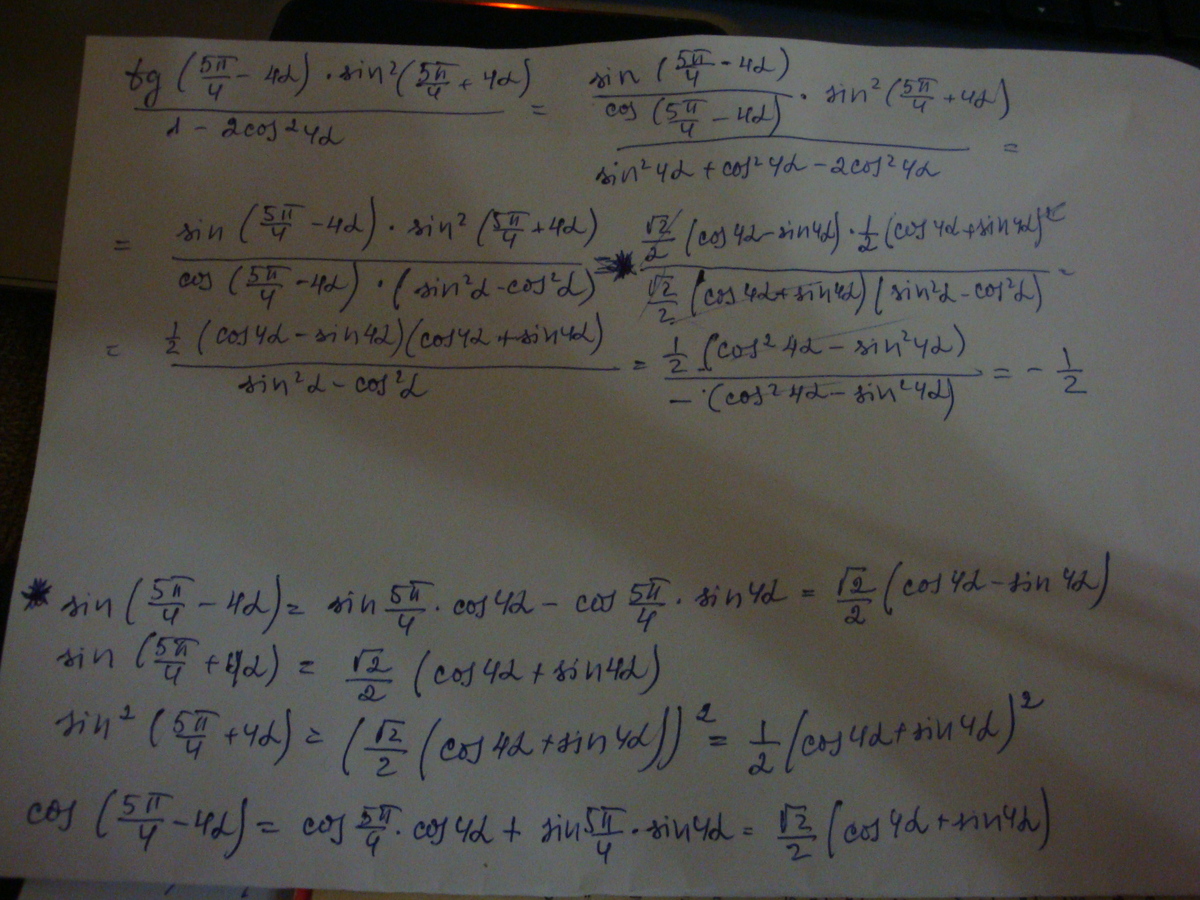 tg (5π/4 - 4α) · sin² (5π/4 + 4α) / 1 - 2cos² 4α = sin (5π/4 - 4α) / cos (5π/4 - 4α) · sin² (5π/4 + 4α) / sin² 4α + cos² 4α - 2cos² 4α =
= sin (5π/4 - 4α) · sin² (5π/4 + 4α) / cos (5π/4 - 4α) · (sin²α - cos²α) = * √2/2 (cos 4α - sin 4α) · 1/2 (cos 4α + sin 4α)² / √2/2 (cos 4α + sin 4α) (sin²α - cos²α) =
= 1/2 (cos 4α - sin 4α)(cos 4α + sin 4α) / sin²α - cos²α = 1/2 (cos² 4α - sin² 4α) / - (cos² 4α - sin² 4α) = - 1/2
* sin (5π/4 - 4α) = sin 5π/4 · cos 4α - cos 5π/4 · sin 4α = √2/2 (cos 4α - sin 4α)
sin (5π/4 + 4α) = √2/2 (cos 4α + sin 4α)
sin² (5π/4 + 4α) = (√2/2 (cos 4α + sin 4α))² = 1/2 (cos 4α + sin 4α)²
cos (5π/4 - 4α) = cos 5π/4 · cos 4α + sin 5π/4 · sin 4α = √2/2 (cos 4α + sin 4α)